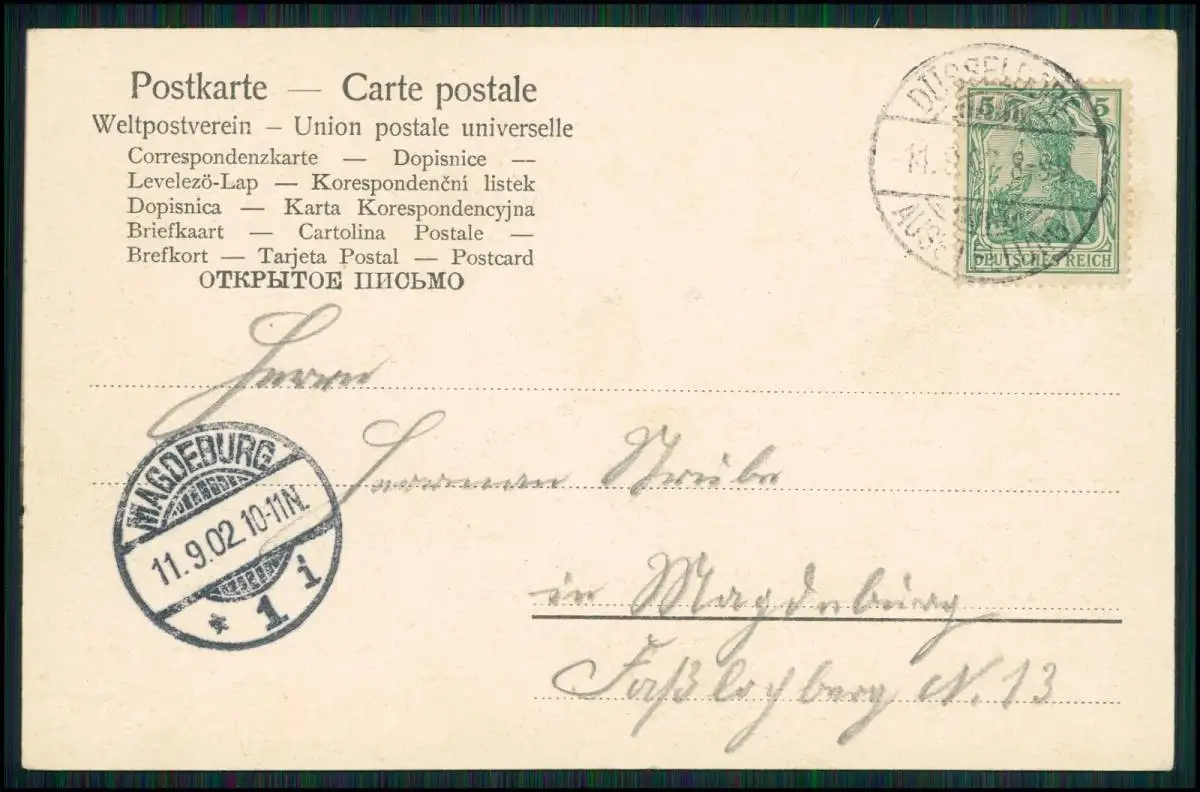 Postkarte — Carte postale
Weltpostverein – Union postale universelle
Correspondenzkarte — Dopisnice —
Levelezö-Lap — Korespondenční listek
Dopisnica — Karta Korespondencyjna
Briefkaart — Cartolina Postale —
Brefkort — Tarjeta Postal — Postcard
ОТКРЫТОЕ ПИСЬМО
DÜSSELDORF
11.9. 8-9
AUSSTELLUNG
5 5
DEUTSCHES REICH
Herrn
Herrman Strube
in Magdeburg
Faßlochberg N. 13
MAGDEBURG
11.9.02.10-11N.
* 1 i